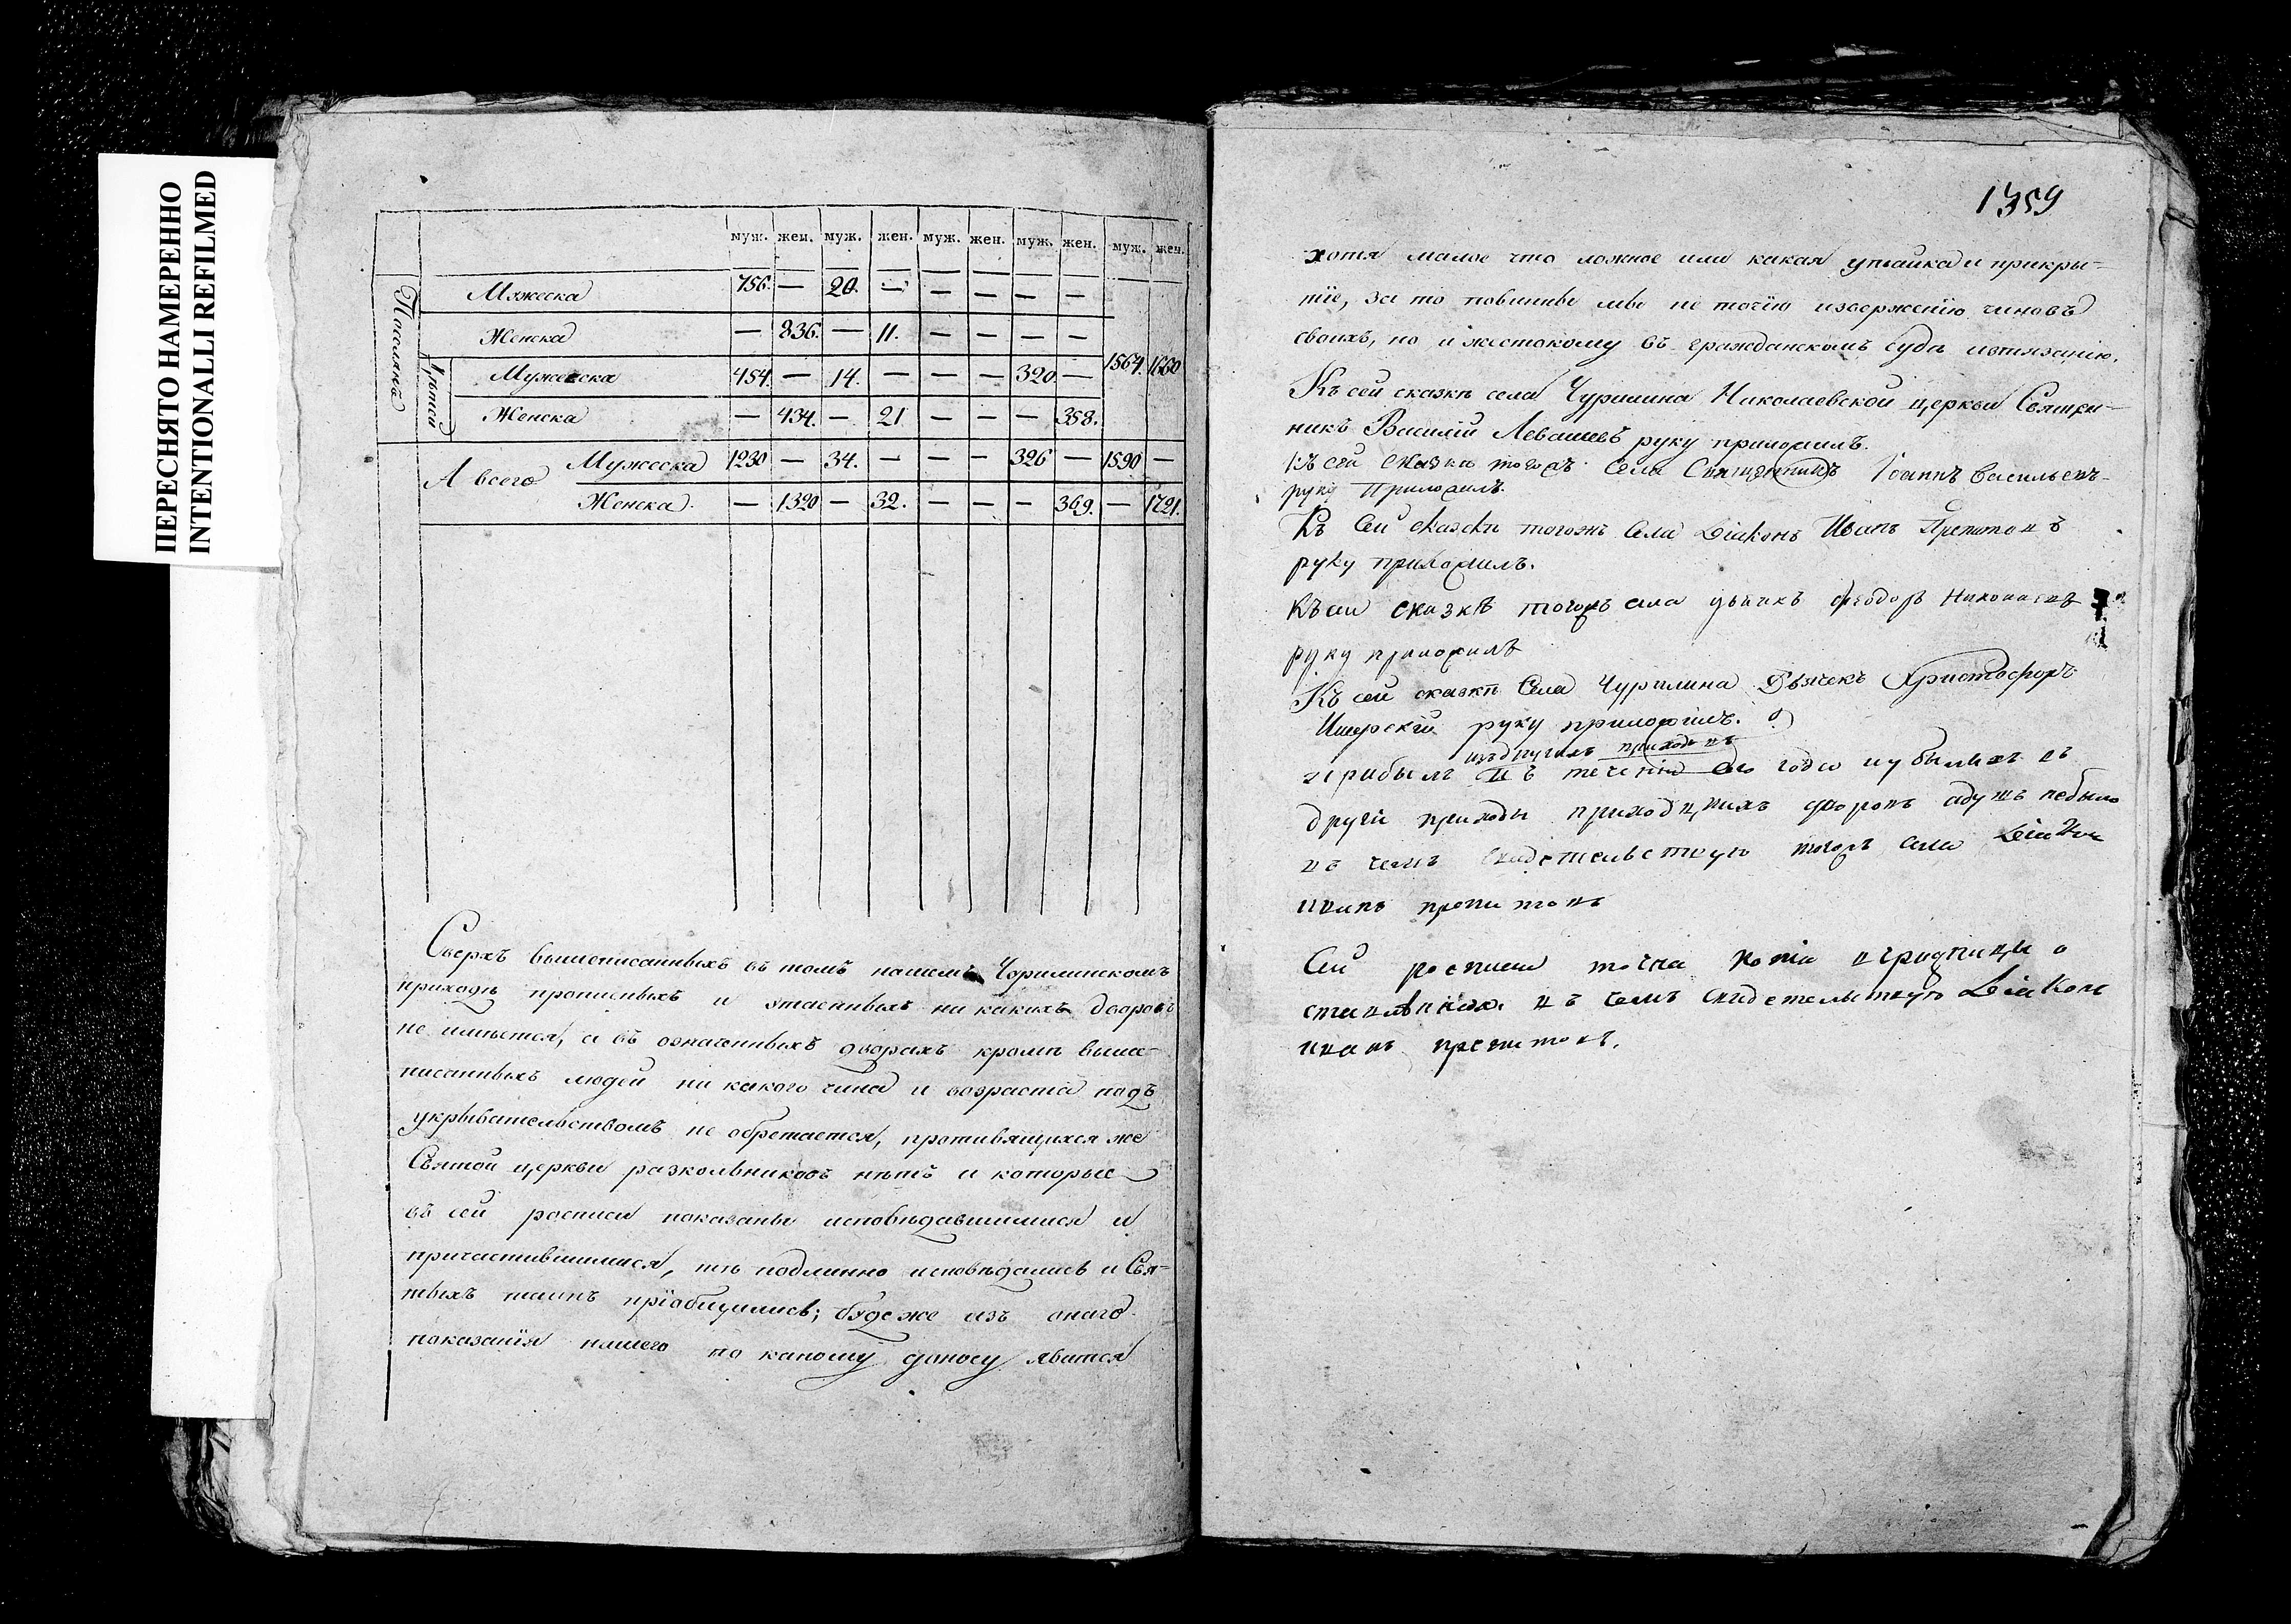 ПЕРЕСНЯТО НАМЕРЕННО
INTENTIONALLI REFILMED
муж. жен. муж. жен. муж. жен. муж. жен. муж. жен.
Поселянъ
Мужеска 756. — 20. — — — — —
Женска — 836. — 11. — — — —
Дѣтей
Мужеска 454. — 14. — — — 320. — 1564. 1660
Женска — 434. — 21 — — — 358.
А всего Мужеска 1230 — 34. — — — 326 — 1590 —
Женска. — 1320 — 32. — — — 369. — 1721.
Сверхъ вышеписанныхъ въ томъ нашемъ Чурилинскомъ
приходѣ прописныхъ и утаенныхъ ни какихъ дворовъ
не имѣется, а въ означенныхъ дворахъ кромѣ выше-
писанныхъ людей ни какого чина и возраста подъ
укрывательствомъ не обретается, противящихся же
Святой церкви раскольниковъ нѣтъ и которые
въ сей росписи показаны исповѣдавшимися и
причастившимися, тѣ подлинно исповѣдались и Свя-
тыхъ таинъ прiобщились; будеже изъ онаго
показанiя нашего по какому доносу явится
1359
хотя малое что ложное или какая утайка и прикры-
тiе, за то повинны мы не точiю изверженiю чиновъ
своихъ, но и жестокому въ гражданскомъ судѣ истязанiю.
Къ сей сказкѣ села Чурилина Николаевской церкви Священ-
никъ Василiй Левашевъ руку приложилъ.
Къ сей сказкѣ тогожъ Села Священникъ Iоаннъ Васильевъ
руку Приложилъ.
Къ Сей сказкѣ тогожъ Села Дiаконъ Иванъ
руку приложилъ.
Къ сей сказкѣ тогожъ села дьячекъ Феодоръ Николаевъ
руку приложилъ
Къ сей сказкѣ Села Чурилина Дьячекъ Христофоръ
руку приложилъ.
изъ другихъ приходовъ
прибылъ въ теченiи сего года и убылыхъ въ
другiе приходы приходскихъ дворовъ и душъ небыло
въ чемъ свидетельствую тогожъ села Дiаконъ
иванъ
Сей росписи точна копiя въ ризницѣ о
ставлѣнная въ чемъ свидетельствую Дiаконъ
иванъ